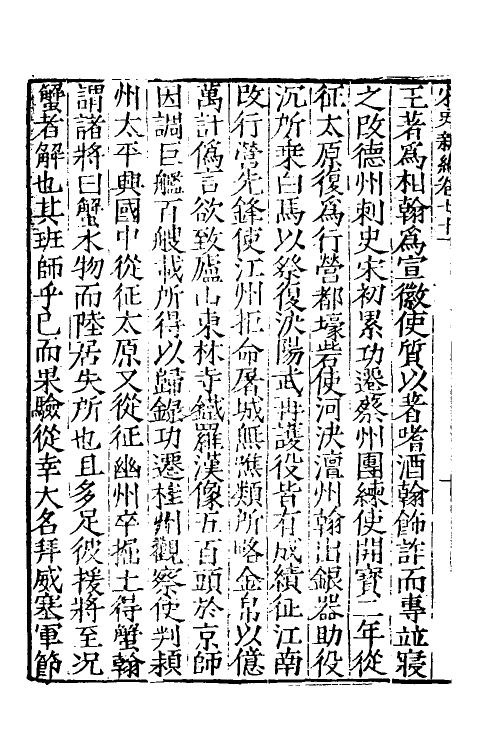 宋史新編卷七十一
王著爲相翰爲宣徽使質以著嗜酒翰飾詐而專並寢
之改德州刺史宋初累功遷蔡州團練使開寶二年從
征太原復爲行營都壕砦使河決澶州翰出銀器助役
沉所乗白馬以祭復決陽武再護役皆有成績征江南
改行營先鋒使江州拒命屠城無噍類所略金帛以億
萬計僞言欲致廬山東林寺鐵羅漢像五百頭於京師
因調巨艦百艘載所得以歸録功遷桂州觀察使判潁
州太平興國中從征太原又從征幽州卒掘土得蟹翰
謂諸將曰蟹水物而陸居失所也且多足彼援將至况
蟹者解也其班師乎已而果驗從幸大名拜威塞軍節